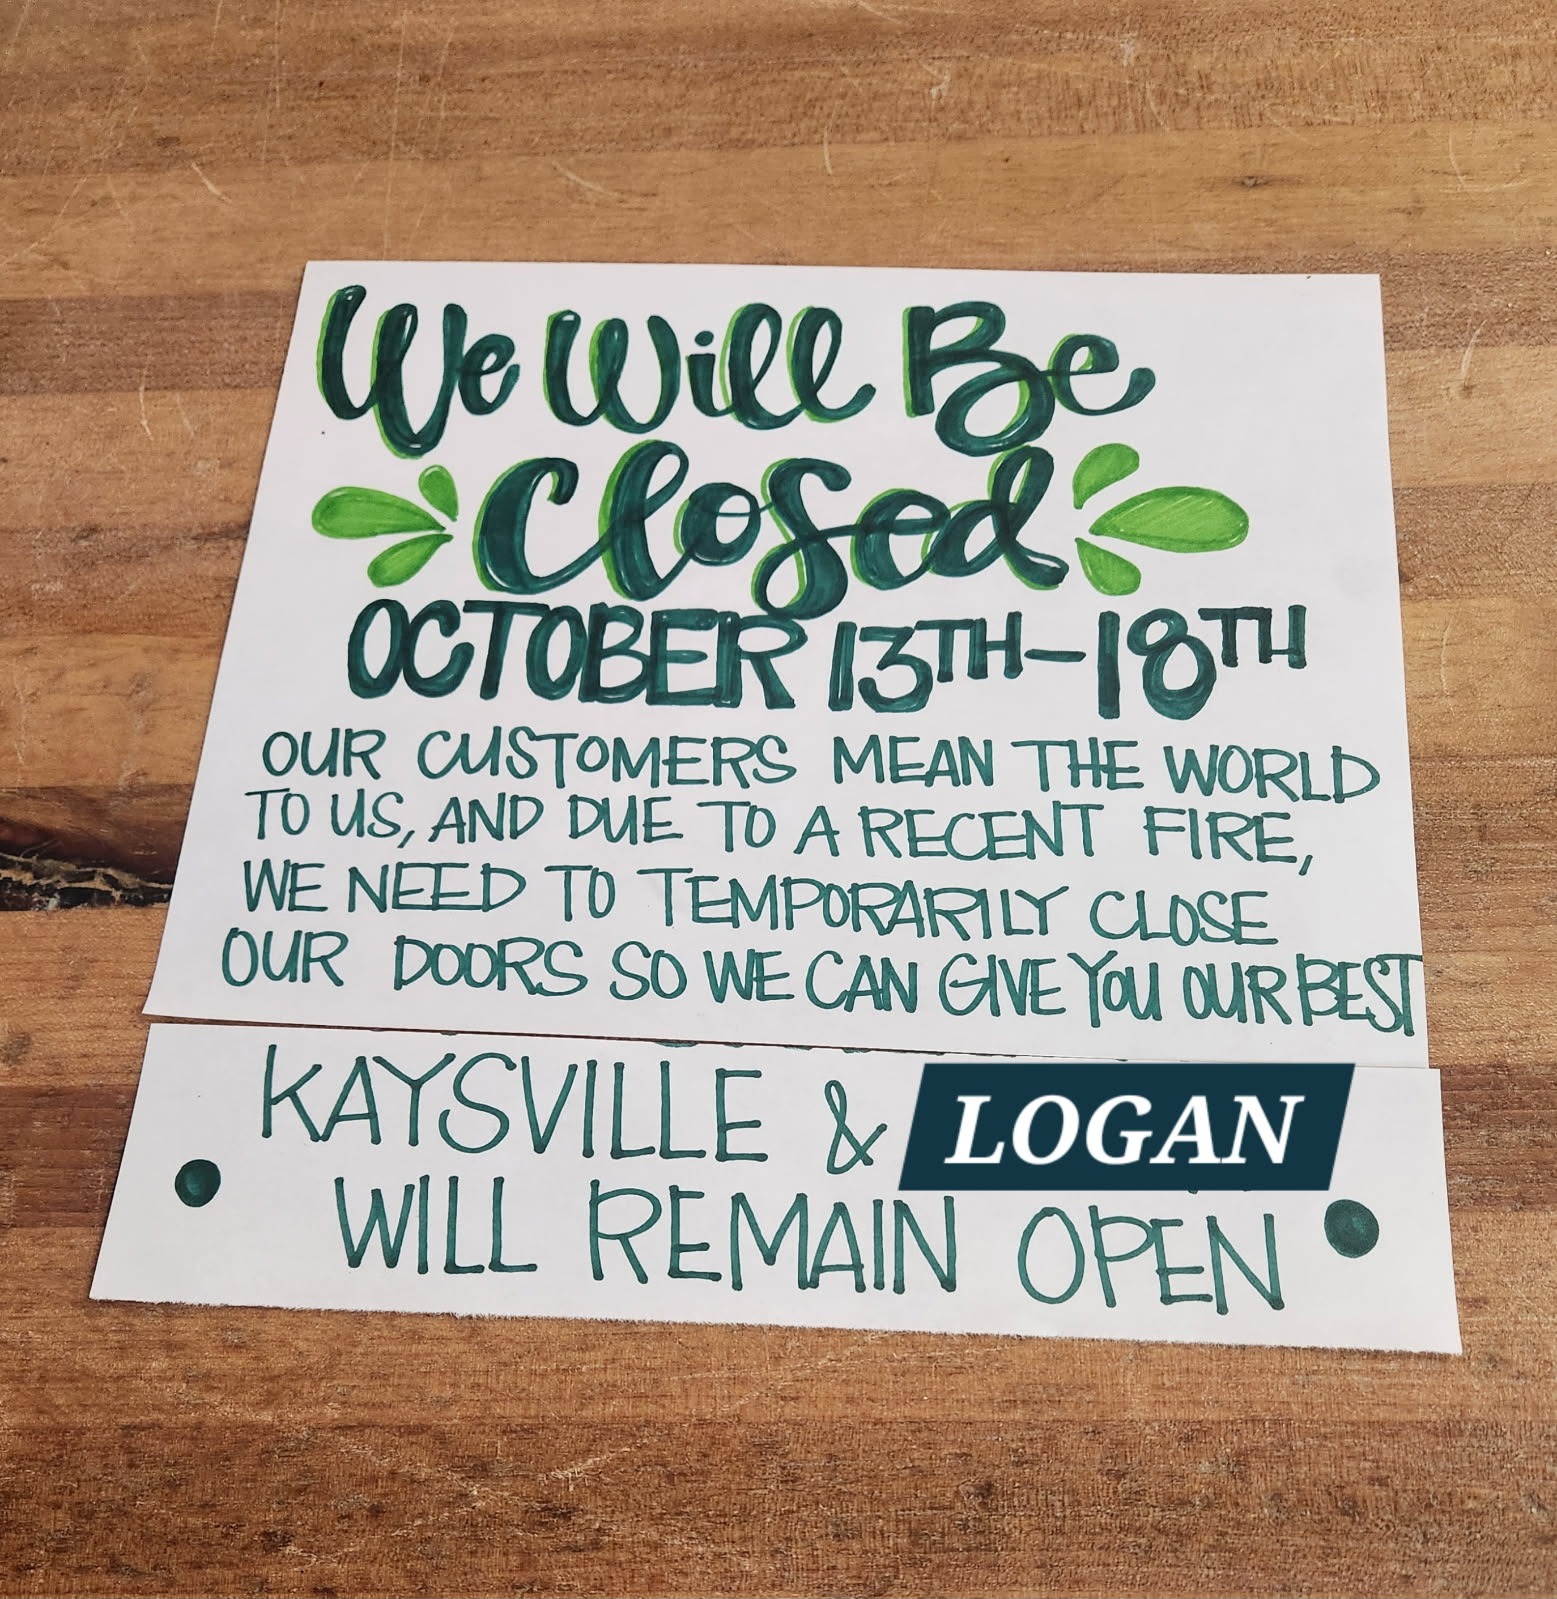 We Will Be
Closed
OCTOBER 13TH-18TH
OUR CUSTOMERS MEAN THE WORLD
TO US, AND DUE TO A RECENT FIRE,
WE NEED TO TEMPORARILY CLOSE
OUR DOORS SO WE CAN GIVE YOU OUR BEST
KAYSVILLE & LOGAN
WILL REMAIN OPEN